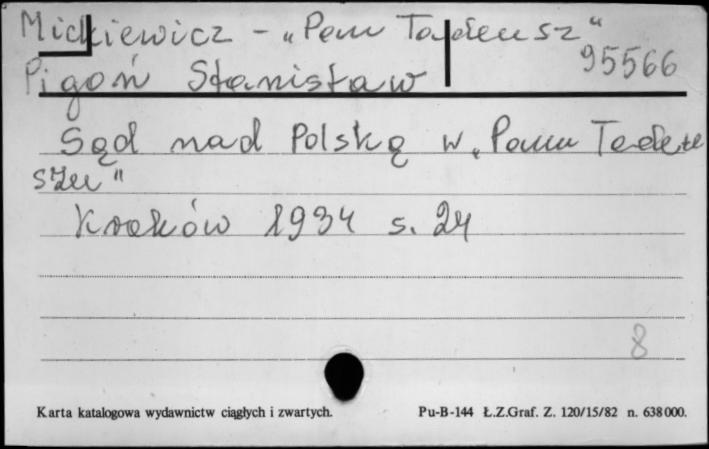 Mickiewicz - „Pan Tadeusz“
95566
Pigoń Stanisław
Sąd nad Polską w „Panu Tadeu
szu"
Kraków 1934 s. 24
8
Karta katalogowa wydawnictw ciągłych i zwartych. Pu-B-144 Ł.Z.Graf. Z. 120/15/82 n. 638000.